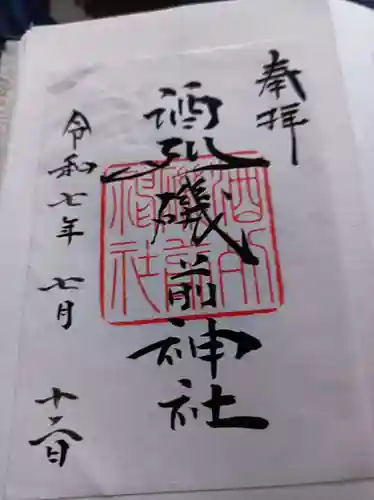 奉拝
酒列磯前神社
令和七年七月十二日
酒列
磯前
神社